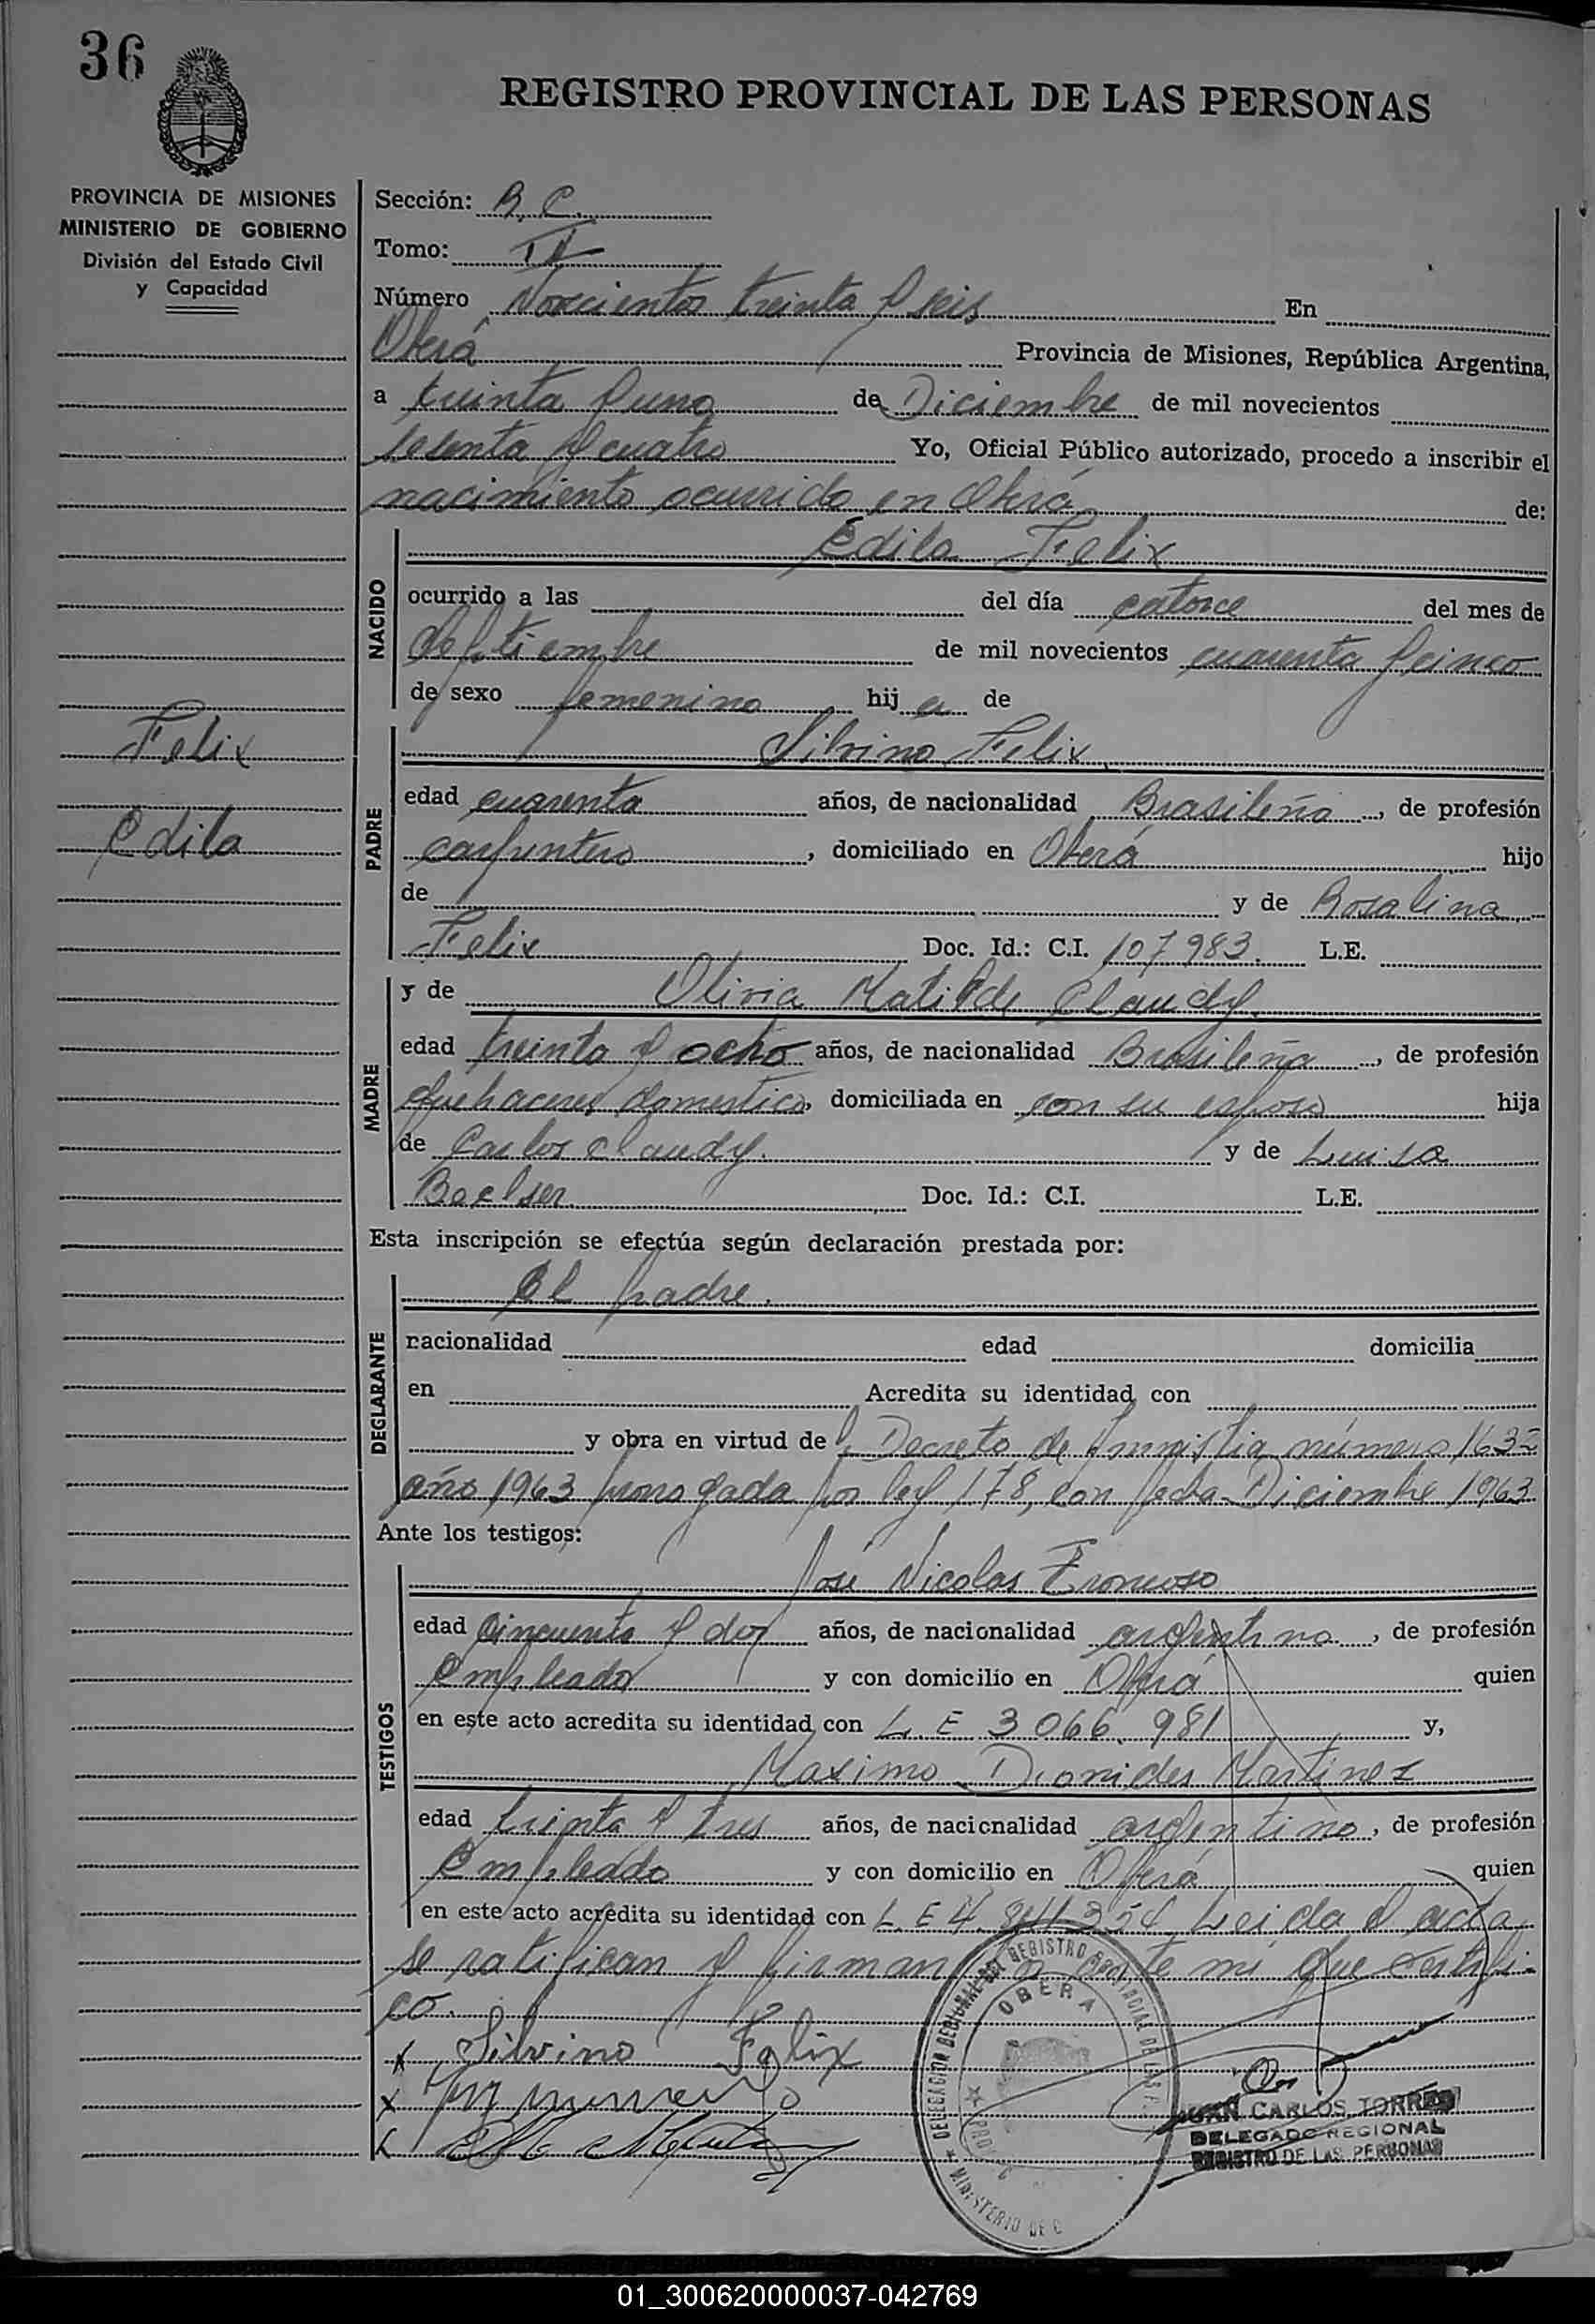 36
REGISTRO PROVINCIAL DE LAS PERSONAS
PROVINCIA DE MISIONES
MINISTERIO DE GOBIERNO
División del Estado Civil
y Capacidad
Felix
Edila
Sección: B. C.
Tomo: IV
Número Novecientos treinta y seis En
Oberá Provincia de Misiones, República Argentina,
a treinta y uno de Diciembre de mil novecientos
sesenta y cuatro Yo, Oficial Público autorizado, procedo a inscribir el
nacimiento ocurrido en Oberá de:
NACIDO
Edila Felix
ocurrido a las del día catorce del mes de
Septiembre de mil novecientos cuarenta y cinco
de sexo femenino hij a de
PADRE
Silvino Felix
edad cuarenta años, de nacionalidad Brasileña, de profesión
carpintero, domiciliado en Oberá hijo
de y de Rosalina
Felix Doc. Id.: C.I. 107983. L.E.
MADRE
y de Olivia Matilde Claudy.
edad treinta y ocho años, de nacionalidad Brasileña, de profesión
quehaceres domestico, domiciliada en con su esposo hija
de Carlos Claudy. y de Luisa
Doc. Id.: C.I. L.E.
Esta inscripción se efectúa según declaración prestada por:
DECLARANTE
El padre.
nacionalidad edad domicilia
en Acredita su identidad con
y obra en virtud del Decreto de Amnistia número 1632
año 1963 prorrogada por ley 178, con fecha Diciembre 1963
Ante los testigos:
TESTIGOS
José Nicolas Troncoso
edad cincuenta y dos años, de nacionalidad argentino, de profesión
Empleado y con domicilio en Oberá quien
en este acto acredita su identidad con L. E 3066.981 y,
Maximo Dionides Martinez
edad treinta y tres años, de nacionalidad argentino, de profesión
Empleado y con domicilio en Oberá quien
en este acto acredita su identidad con L. E 4. Leida el acta
se ratifican y firman por ante mi que certifi-
co.
x Silvino Felix
x
x
DELEGACION REGIONAL DEL REGISTRO PROVINCIAL DE LAS P
OBERA
MINISTERIO DE G
JUAN CARLOS TORRES
DELEGADO REGIONAL
REGISTRO DE LAS PERSONAS
01_300620000037-042769